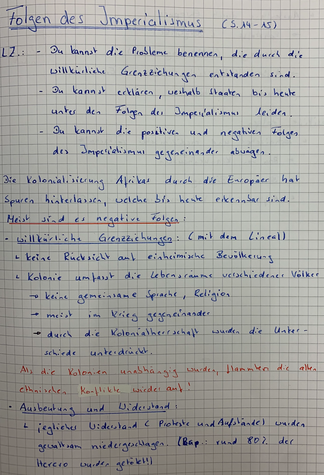 Folgen des Imperialismus (S. 14-15)
LZ.: - Du kannst die Probleme benennen, die durch die
willkürliche Grenzziehungen entstanden sind.
- Du kannst erklären, weshalb Staaten bis heute
unter den Folgen des Imperialismus leiden.
- Du kannst die positiven und negativen Folgen
des Imperialismus gegeneinander abwägen.
Die Kolonialisierung Afrikas durch die Europäer hat
Spuren hinterlassen, welche bis heute erkennbar sind.
Meist sind es negative Folgen:
- willkürliche Grenzziehungen: (mit dem Lineal)
↳ keine Rücksicht auf einheimische Bevölkerung
↳ Kolonie umfasst die Lebensräume verschiedener Völker
→ keine gemeinsame Sprache, Religion
→ meist im Krieg gegeneinander
→ durch die Kolonialherrschaft wurden die Unter-
schiede unterdrückt.
Als die Kolonien unabhängig wurden, flammten die alten
ethnischen Konflikte wieder auf!
- Ausbeutung und Widerstand:
↳ jeglicher Widerstand (Proteste und Aufstände) wurden
gewaltsam niedergeschlagen. (Bsp.: rund 80% der
Herero wurden getötet!)